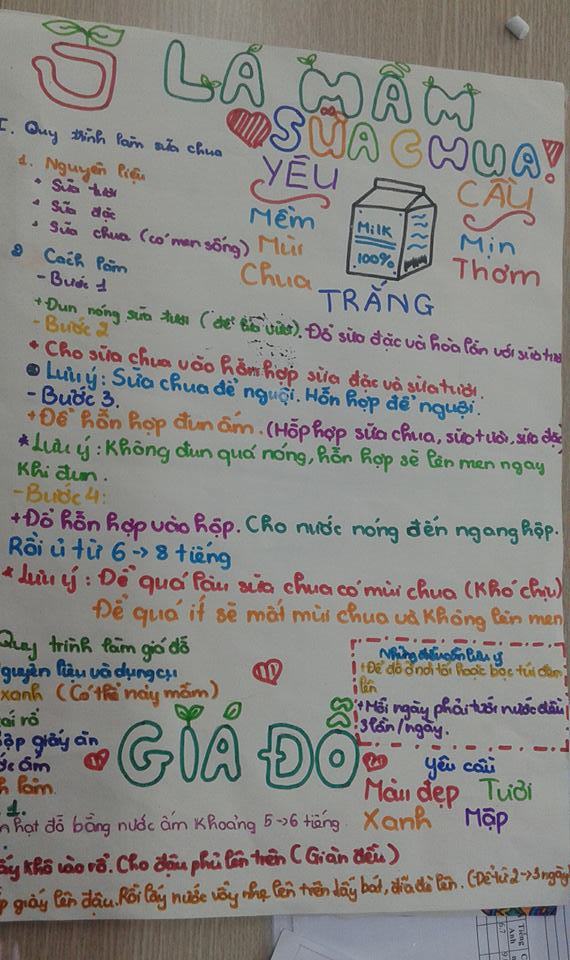 5 LÁ MẦM
SỮA CHUA!
I. Quy trình làm sữa chua
1. Nguyên liệu
+ Sữa tươi
+ Sữa đặc
+ Sữa chua (có men sống)
YÊU CẦU
Mềm
Mịn
Mùi
Thơm
Chua
TRẮNG
Milk
100%
2 Cách làm
- Bước 1
+ Đun nóng sữa tươi. Đổ sữa đặc và hòa lẫn với sữa tươi
- Bước 2
+ Cho sữa chua vào hỗn hợp sữa đặc và sữa tươi.
Lưu ý: Sữa chua để nguội. Hỗn hợp để nguội.
- Bước 3.
+ Để hỗn hợp đun ấm. (Hỗp hợp sữa chua, sữa tươi, sữa đặc
* Lưu ý: Không đun quá nóng, hỗn hợp sẽ lên men ngay
khi đun.
- Bước 4:
+ Đổ hỗn hợp vào hộp. Cho nước nóng đến ngang hộp.
Rồi ủ từ 6 → 8 tiếng
* Lưu ý: Để quá lâu sữa chua có mùi chua (khó chịu)
Để quá ít sẽ mất mùi chua và không lên men
Quy trình làm giá đỗ
nguyên liệu và dụng cụ
xanh (có thể nảy mầm)
rổ
giấy ăn
ấm
làm
Những điều cần lưu ý
+ Để đỗ ở nơi tối hoặc bọc túi đen
lên
+ Mỗi ngày phải tưới nước đều
3 lần/ngày.
GIÁ ĐỖ
Yêu cầu
Màu đẹp Tươi
Xanh Mập
1.
hạt đỗ bằng nước ấm khoảng 5 → 6 tiếng.
lấy khô vào rổ. Cho đậu phủ lên trên (Giàn đều)
giấy lên đậu. Rồi lấy nước vẩy nhẹ lên trên lấy bát, đĩa đè lên. (Để từ 2 → 3 ngày
Tiếng
Anh
6.7